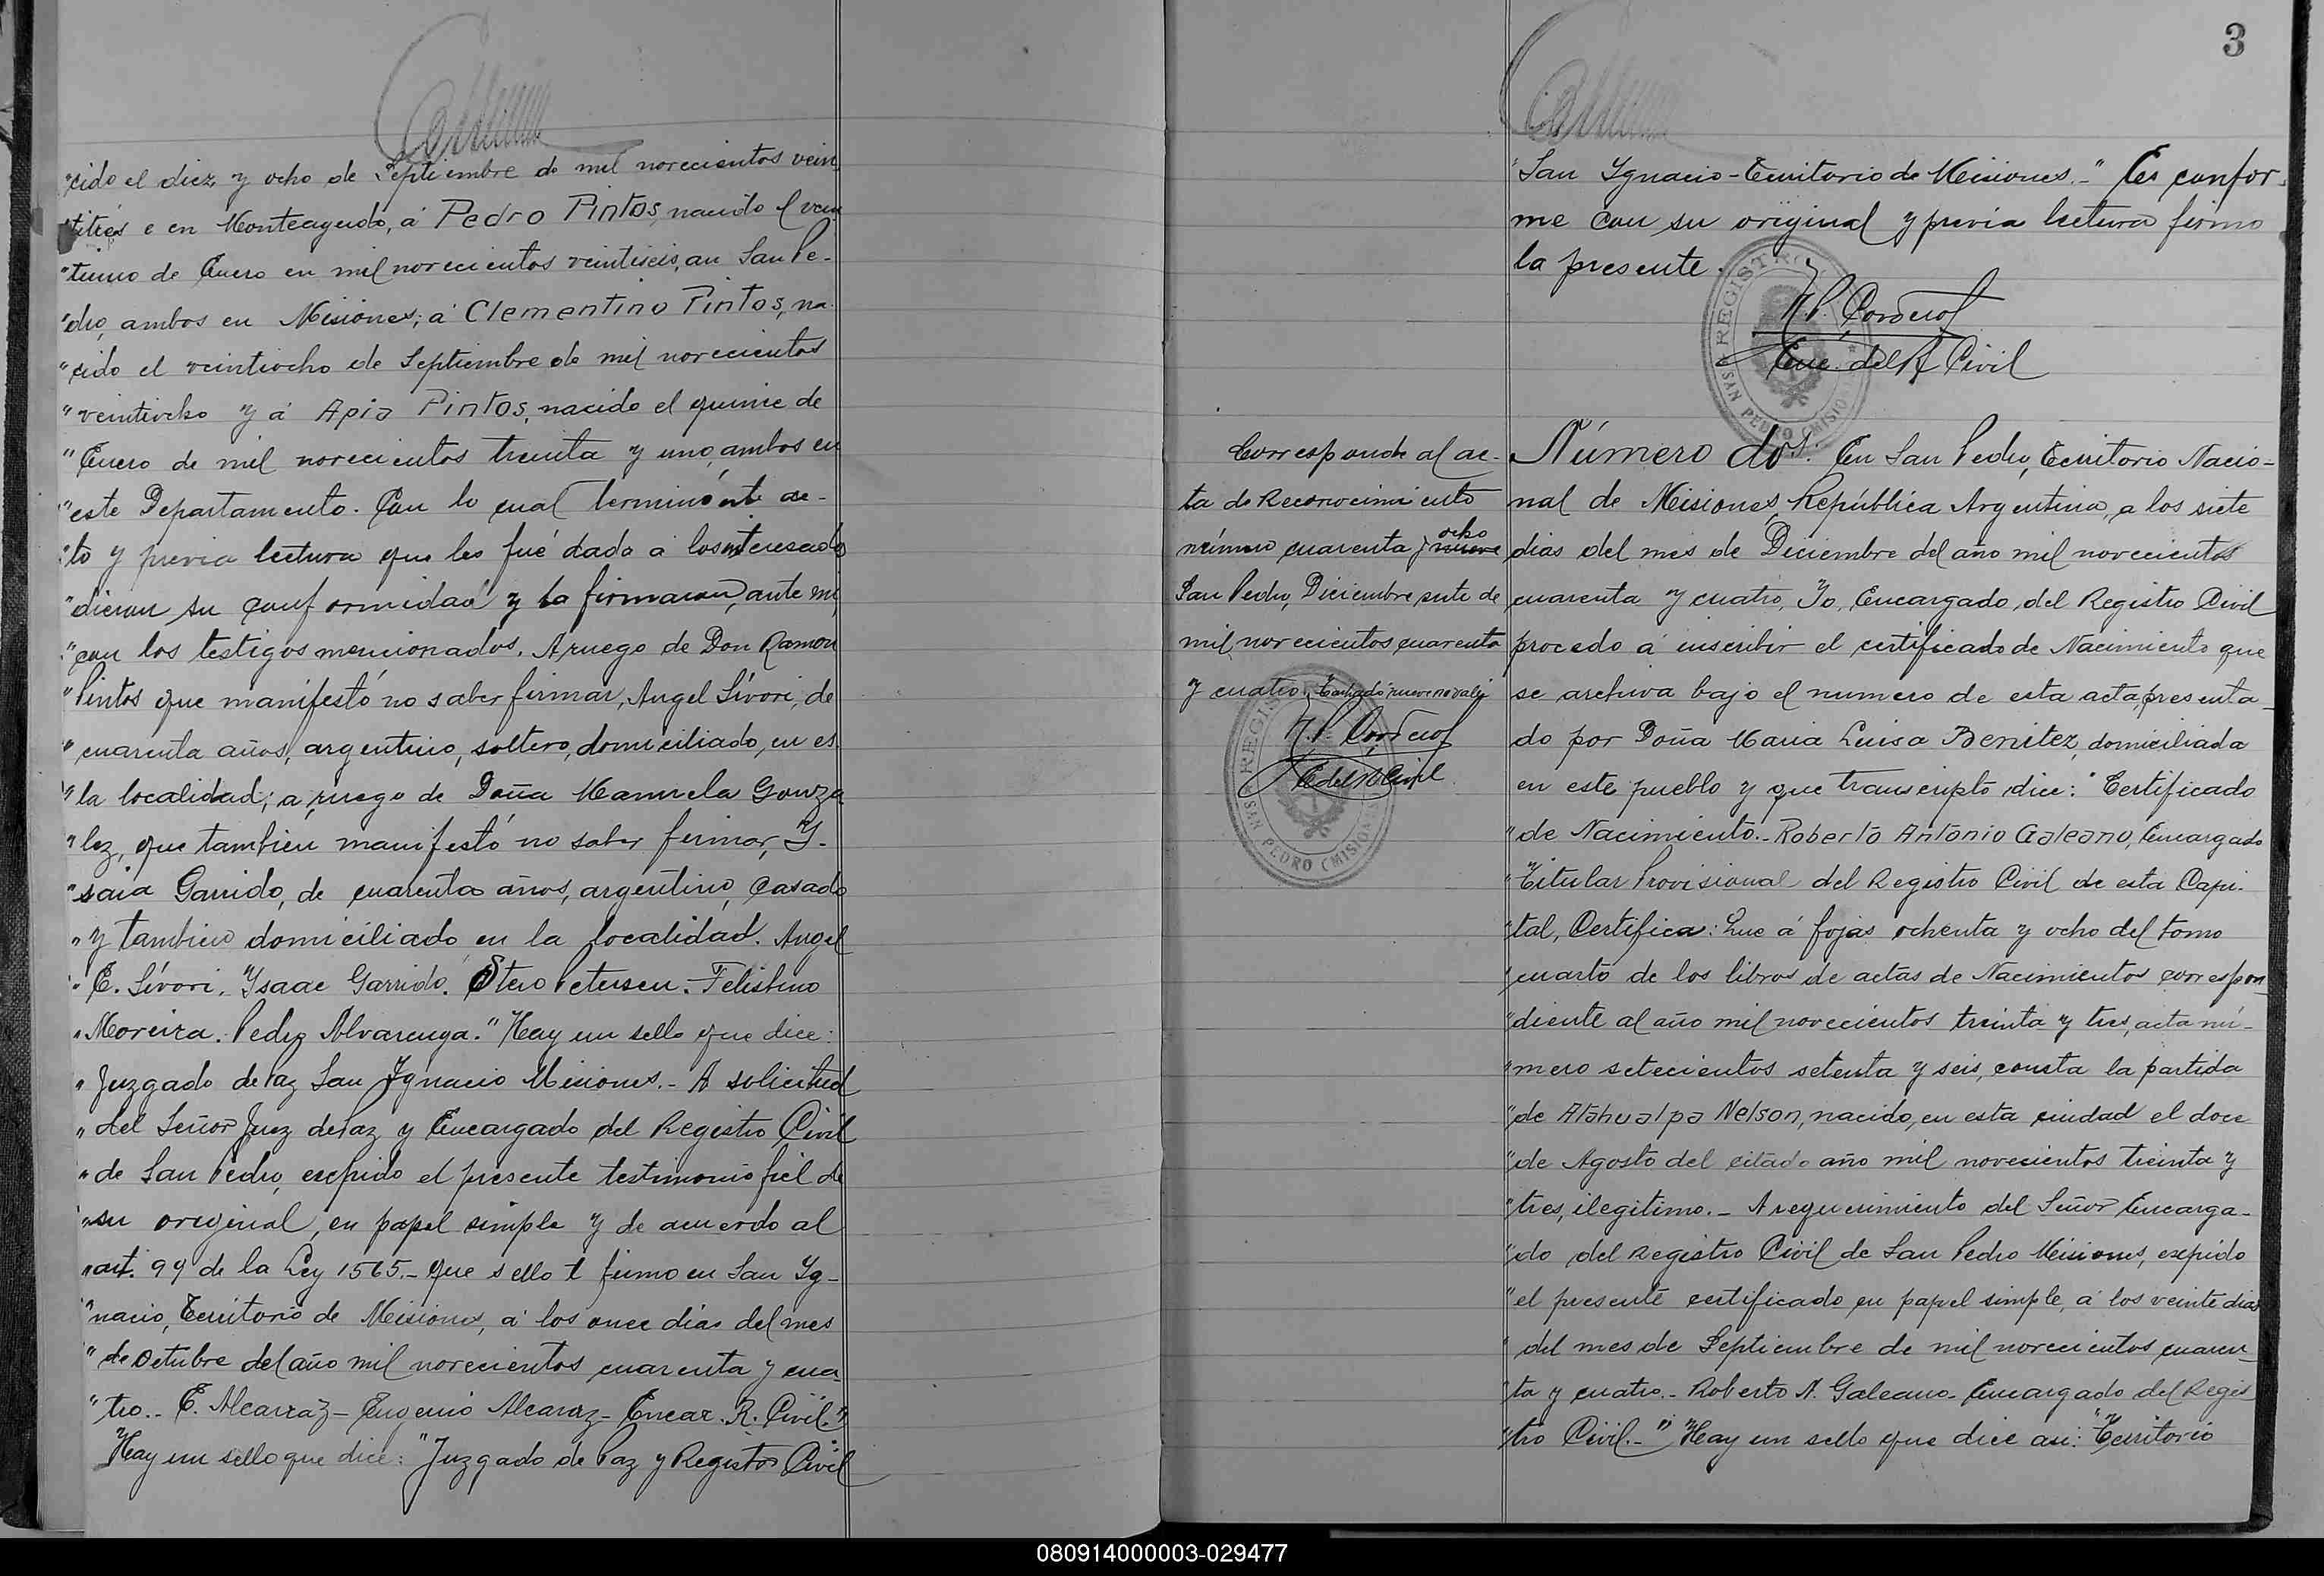 "cido el diez y ocho de Septiembre de mil novecientos vein
"titrés e en Monteagudo, á Pedro Pintos, nacido el vein
"tiuno de Enero en mil novecientos veintiseis, an San Pe-
"dro, ambos en Misiones; á Clementino Pintos, na-
"cido el veintiocho de Septiembre de mil novecientos
"veintiocho y á Apio Pintos, nacido el quince de
"Enero de mil novecientos treinta y uno, ambos en
"este Departamento. Con lo cual terminó este ac-
"to y previa lectura que les fué dada a los interesado
"dieron su conformidad y la firmaron, ante mi,
"con los testigos mencionados. A ruego de Don Ramon
"Pintos que manifestó no saber firmar, Angel Sívori, de
"cuarenta años, argentino, soltero, domiciliado, en es
"la localidad; a ruego de Doña Manuela Gonza
"lez, que tambien manifestó no saber firmar, Y-
"saia Garrido, de cuarenta años, argentino, casado
"y tambien domiciliado en la localidad. Angel
"E. Sívori. Ysaac Garrido. Otero Petersen. Felisbino
"Moreira. Pedro Alvarenga." Hay un sello que dice:
"Juzgado de Paz San Ygnacio Misiones.- A solicitud
"del Señor Juez de Paz y Encargado del Registro Civil
"de San Pedro, expido el presente testimonio fiel de
"su original, en papel simple y de acuerdo al
"art. 99 de la Ley 1565.- que sello t firmo en San Yg-
"nacio, Territorio de Misiones, á los once días del mes
"de Octubre del año mil novecientos cuarenta y cua-
"tro.- E. Alcarraz - Eugenio Alcaraz - Encar. R. Civil."
Hay un sello que dice: "Juzgado de Paz y Registro Civil
3
"San Ygnacio - Territorio de Misiones.-" Es confor-
me con su original y previa lectura firmo
la presente.
REGISTRO
SAN PEDRO (MISIO
N. P. Cordero
Enc. del R Civil
Corresponde al ac-
ta de Reconocimiento
número cuarenta y nueve
ocho
San Pedro, Diciembre siete de
mil novecientos cuarenta
y cuatro. Tachado: nueve no vale
N. P. Cordero
E del R Civil
REGIS
SAN PEDRO (MISION
Número dos. En San Pedro, Territorio Nacio-
nal de Misiones, República Argentina, a los siete
dias del mes de Diciembre del año mil novecientos
cuarenta y cuatro, Yo, Encargado, del Registro Civil
procedo á inscribir el certificado de Nacimiento que
se archiva bajo el numero de esta acta, presenta-
do por Doña Maria Luisa Benitez, domiciliada
en este pueblo y que transcripto dice: "Certificado
"de Nacimiento.- Roberto Antonio Galeano, Encargado
"Titular Provisional del Registro Civil de esta Capi-
"tal, Certifica: Que á fojas ochenta y ocho del tomo
"cuarto de los libros de actas de Nacimientos correspon-
"diente al año mil novecientos treinta y tres, acta nú-
"mero setecientos setenta y seis, consta la partida
"de Atahualpa Nelson, nacido, en esta ciudad el doce
"de Agosto del citado año mil novecientos treinta y
"tres, ilegitimo.- A requerimiento del Señor Encarga-
"do del Registro Civil de San Pedro Misiones, expido
"el presente certificado en papel simple, á los veinte dias
"del mes de Septiembre de mil novecientos cuaren-
"ta y cuatro.- Roberto A. Galeano - Encargado del Regis
"tro Civil.-" Hay un sello que dice asi: "Territorio
080914000003-029477